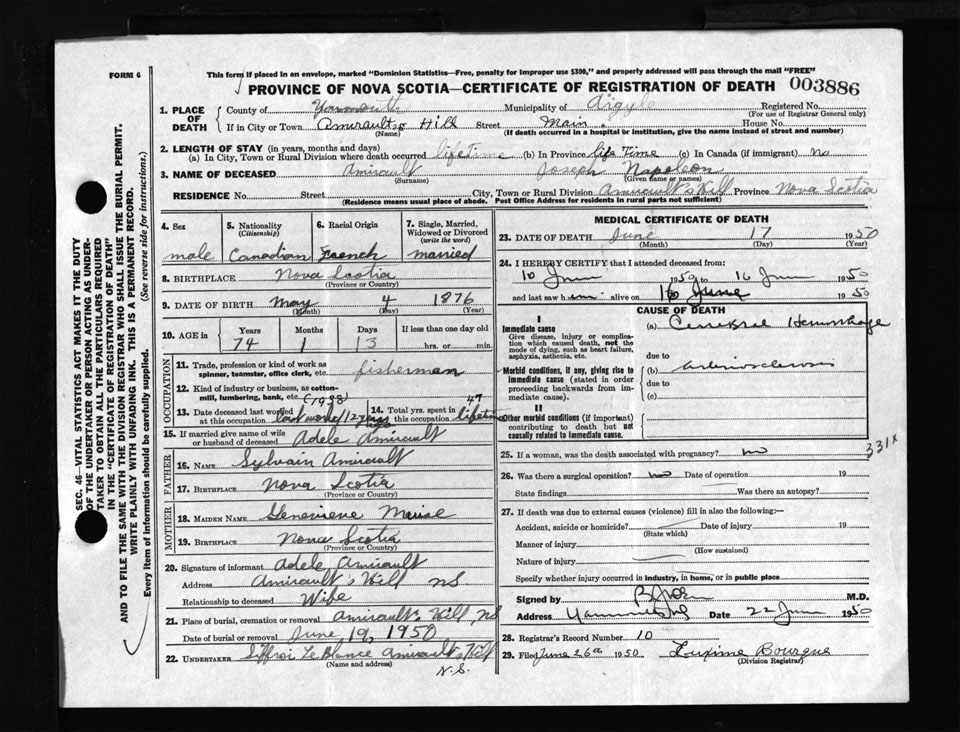 FORM 6
This form if placed in an envelope, marked "Dominion Statistics—Free, penalty for improper use $300," and properly addressed will pass through the mail "FREE"
PROVINCE OF NOVA SCOTIA—CERTIFICATE OF REGISTRATION OF DEATH 003886
1. PLACE OF DEATH
County of Yarmouth Municipality of Argyle Registered No.
(For use of Registrar General only)
If in City or Town Amirault's Hill Street Main House No.
(Name) (If death occurred in a hospital or institution, give the name instead of street and number)
2. LENGTH OF STAY (in years, months and days)
(a) In City, Town or Rural Division where death occurred life Time (b) In Province life Time (c) In Canada (if immigrant) no
3. NAME OF DECEASED Amirault Joseph Napoleon
(Surname) (Given name or names)
RESIDENCE No. Street City, Town or Rural Division Amirault's Hill Province Nova Scotia
(Residence means usual place of abode. Post Office Address for residents in rural parts not sufficient)
4. Sex 5. Nationality (Citizenship) 6. Racial Origin 7. Single, Married, Widowed or Divorced (write the word)
male Canadian French married
8. BIRTHPLACE Nova Scotia
(Province or Country)
9. DATE OF BIRTH May 4 1876
(Month) (Day) (Year)
10. AGE in Years Months Days If less than one day old
74 1 13 hrs. or min.
OCCUPATION
11. Trade, profession or kind of work as spinner, teamster, office clerk, etc. fisherman
12. Kind of industry or business, as cotton-mill, lumbering, bank, etc. (1938)
13. Date deceased last worked at this occupation last worked 12 years ago 14. Total yrs. spent in this occupation 47 lifetime
15. If married give name of wife or husband of deceased Adele Amirault
FATHER
16. NAME Sylvain Amirault
17. BIRTHPLACE Nova Scotia
(Province or Country)
MOTHER
18. MAIDEN NAME Genevieve Meuse
19. BIRTHPLACE Nova Scotia
(Province or Country)
20. Signature of informant Adele Amirault
Address Amirault's Hill NS
Relationship to deceased Wife
21. Place of burial, cremation or removal Amirault's Hill, NS
Date of burial or removal June 19, 1950
22. UNDERTAKER Siffroi Le Blance Amirault's Hill
(Name and address)
N.S.
MEDICAL CERTIFICATE OF DEATH
23. DATE OF DEATH June 17 1950
(Month) (Day) (Year)
24. I HEREBY CERTIFY that I attended deceased from:
10 June 1950 to 16 June 1950
and last saw him alive on 16 June 1950
CAUSE OF DEATH
I
Immediate cause
Give disease, injury or complication which caused death, not the mode of dying, such as heart failure, asphyxia, asthenia, etc.
(a) Cerebral Hemorrhage
due to
Morbid conditions, if any, giving rise to immediate cause (stated in order proceeding backwards from immediate cause).
(b) arteriosclerosis
due to
(c)
II
Other morbid conditions (if important) contributing to death but not causally related to immediate cause.
25. If a woman, was the death associated with pregnancy? no
331x
26. Was there a surgical operation? no Date of operation 19
State findings Was there an autopsy?
27. If death was due to external causes (violence) fill in also the following:—
Accident, suicide or homicide? Date of injury 19
(State which)
Manner of injury
(How sustained)
Nature of injury
Specify whether injury occurred in industry, in home, or in public place
Signed by M.D.
Address Yarmouth, NS Date 22 June 1950
28. Registrar's Record Number 10
29. Filed June 26th 1950 Luxime Bourque
(Division Registrar)
SEC. 46—VITAL STATISTICS ACT MAKES IT THE DUTY
OF THE UNDERTAKER OR PERSON ACTING AS UNDERTAKER TO OBTAIN ALL THE PARTICULARS REQUIRED
IN THE "CERTIFICATE OF REGISTRATION OF DEATH"
AND TO FILE THE SAME WITH THE DIVISION REGISTRAR WHO SHALL ISSUE THE BURIAL PERMIT.
WRITE PLAINLY WITH UNFADING INK. THIS IS A PERMANENT RECORD.
Every item of Information should be carefully supplied. (See reverse side for instructions.)